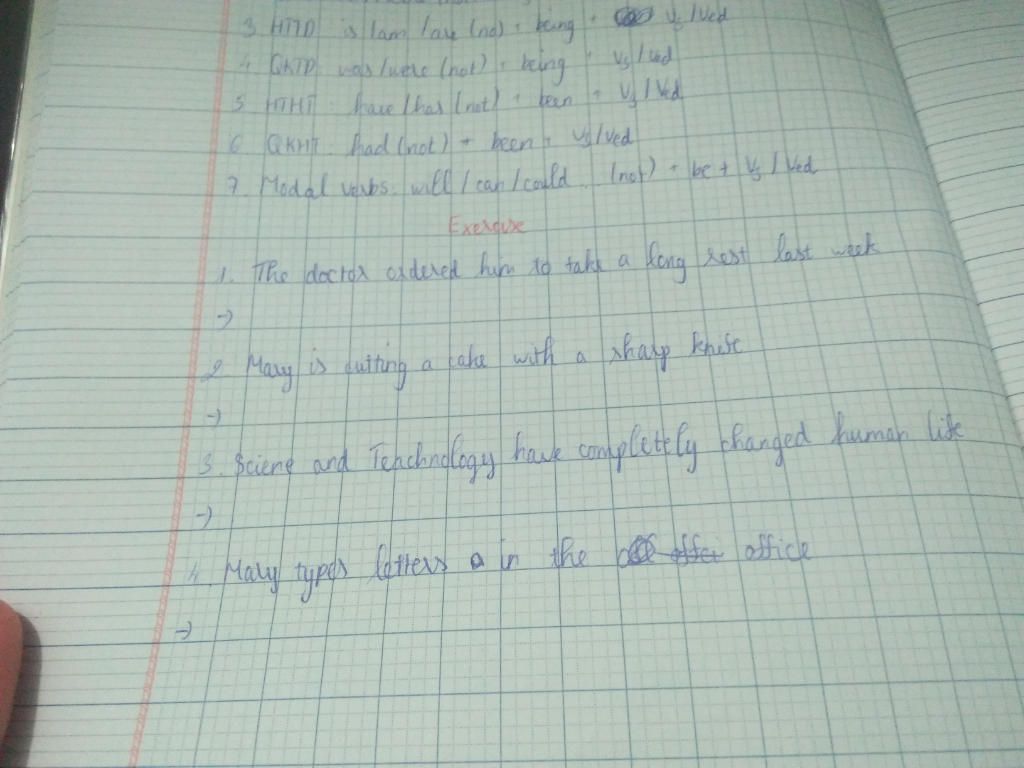 3 HTTD is / am / are (no) + being + V3 / Ved
4 QKTD was / were (not) + being + V3 / ved
5 HTHT: have / has (not) + been + V3 / Ved
6 QKHT: had (not) + been + V3 / Ved
7. Modal verbs: will / can / could.. (not) + be + V3 / Ved
Exercise
1. The doctor ordered him to take a long rest last week
->
2. Mary is cutting a cake with a sharp knife
->
3. Sciene and Teachnology have completely changed human life
->
4. Mary types letters in the office
->